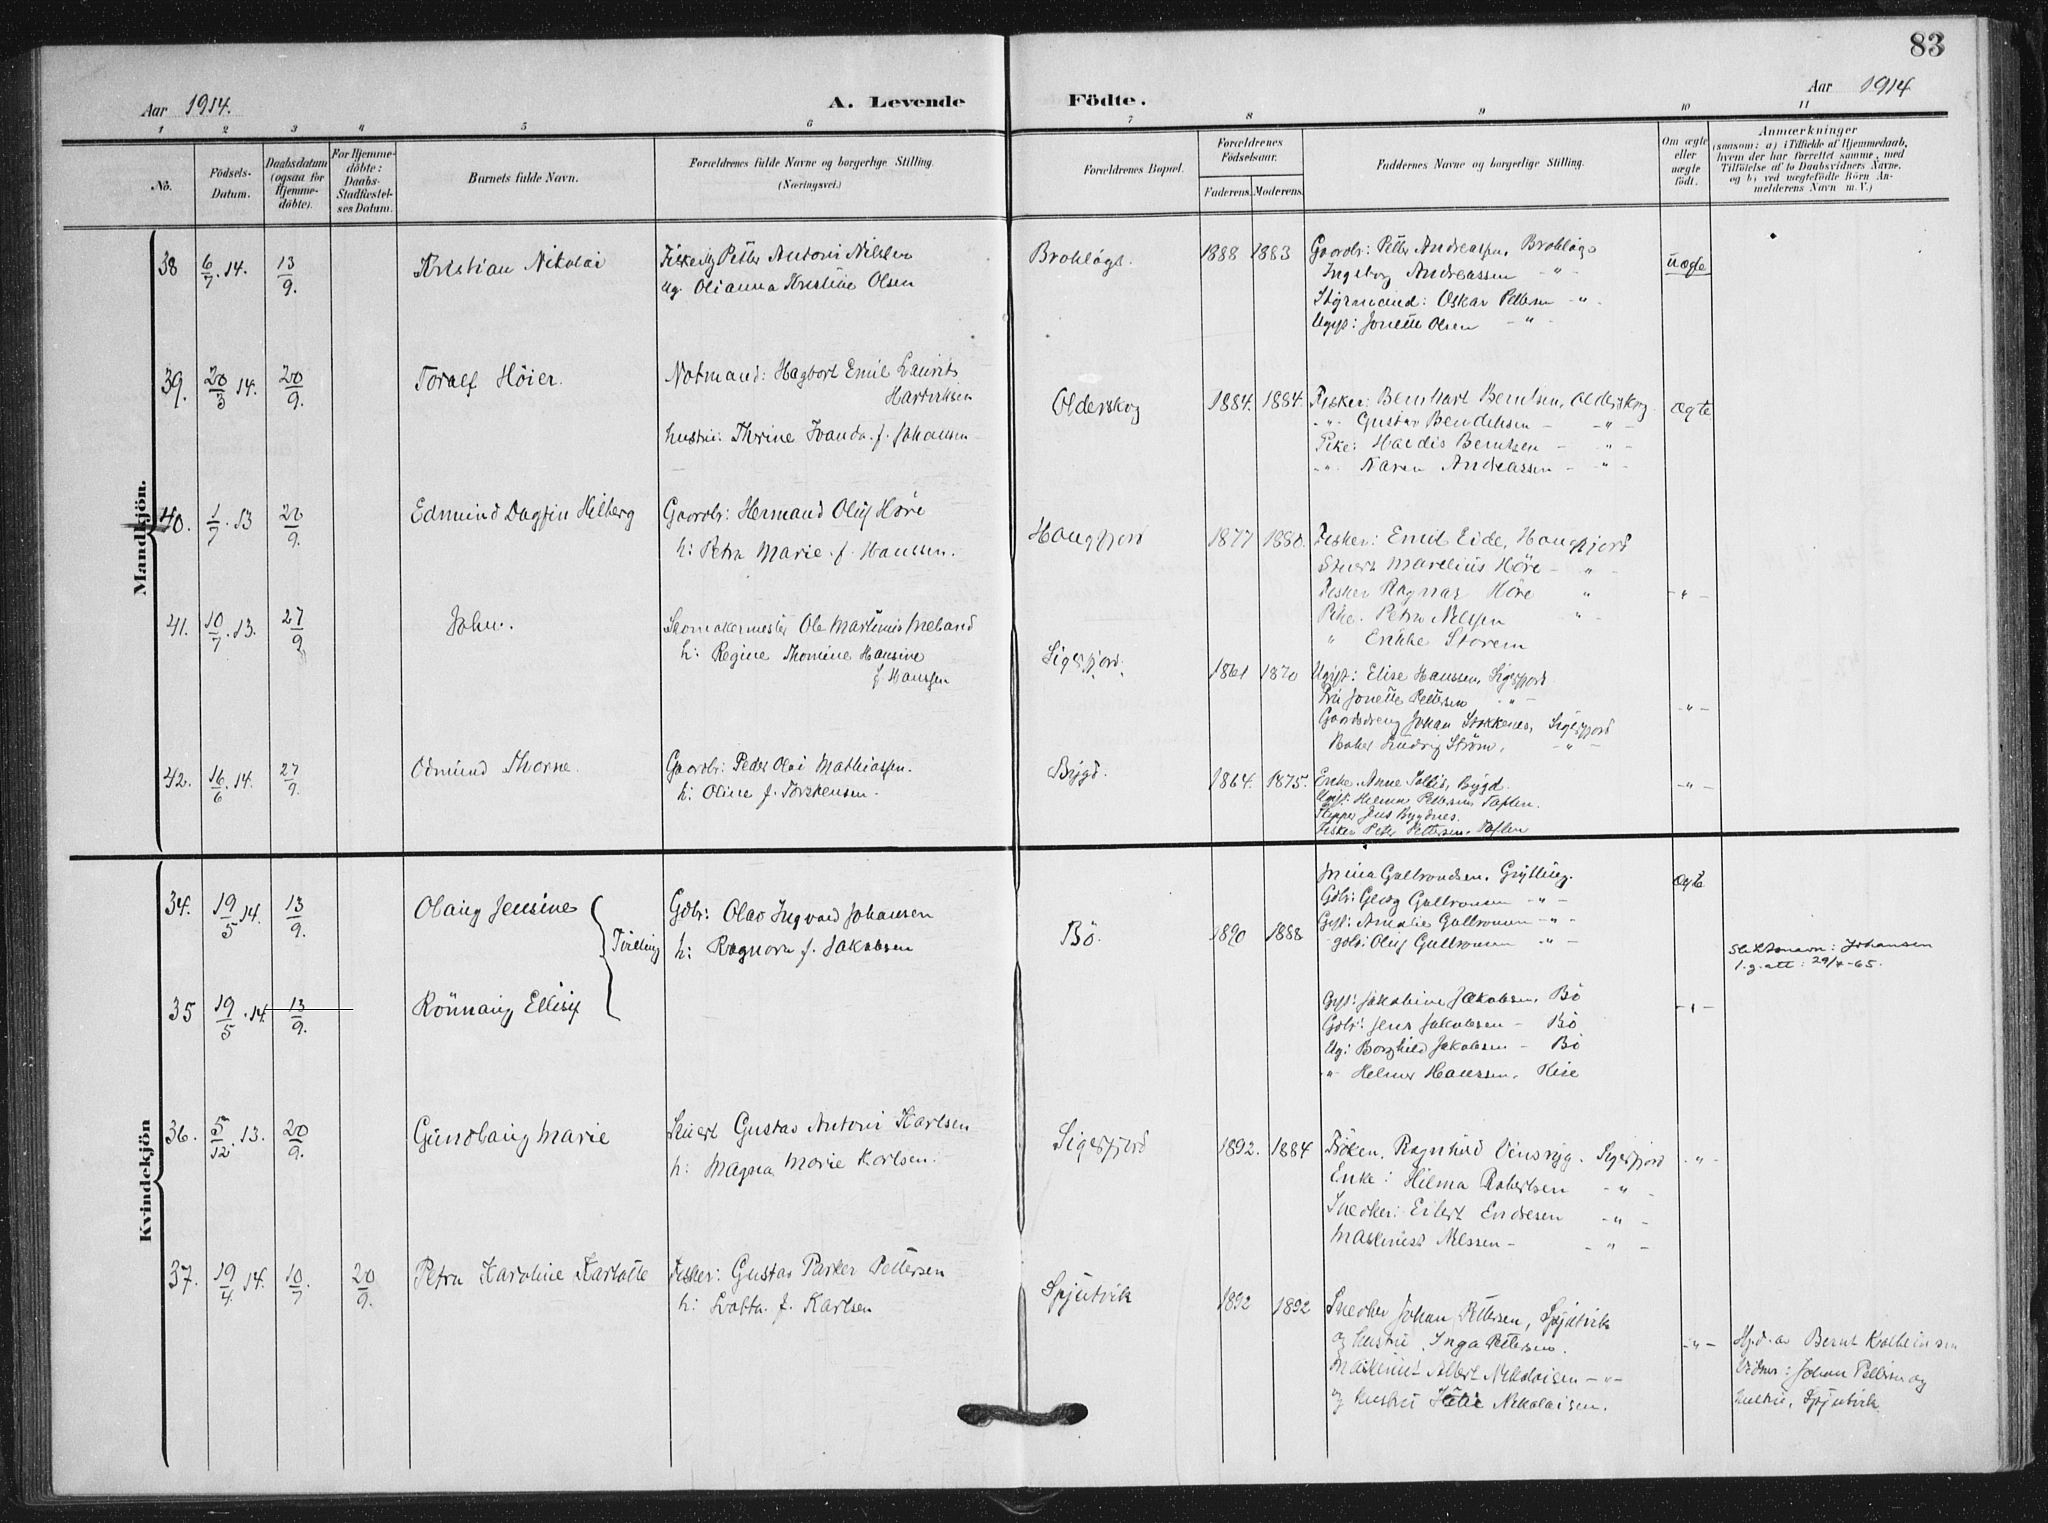 83
Aar 1914.
A. Levende
Födte.
Aar 1914
1 2 3 4 5 6 7 8 9 10 11
No.
Födsels-
Datum.
Daabsdatum
(ogsaa for
Hjemme-
döbte).
For Hjemme-
döbte:
Daabs-
Stadfæstel-
ses Datum.
Barnets fulde Navn.
Forældrenes fulde Navne og borgerlige Stilling.
(Næringsvei.)
Forældrenes Bopæl.
Forældrenes
Födselsaar.
Faderens. Moderens.
Faddernes Navne og borgerlige Stilling.
Om ægte
eller
uægte
födt.
Anmærkninger
(saasom: a) i Tilfælde af Hjemmedaab,
hvem der har forrettet samme, med
Tilföielse af to Daabsvidners Navne.
og b) ved uægtefödte Börn An-
melderens Navn m. V.)
Mandkjön.
38 6/7.14. 13/9. Kristian Nikolai
Petter Antoni Nilsen
Ug. Olianna Kristine Olsen
1888 1883
Gaardbr: Petter Andreassen,
Ingeborg Andreassen - " -
Styrmand: Oskar Pettersen - " -
Ugift: Jonette Olsen - " -
uægte
39. 20/3 14. 20/9. Toralf Höier.
Notmand: Hagbort Emil Laurits
hustru: Thrine f. Johansen
Olderskog
1884. 1884.
Fisker: Bernhart Berntsen, Olderskog
- " - Gustav Bendiksen - - " -
Pike: Haldis Berntsen - - " -
- " - Karen Andreassen - - " -
ægte
40. 1/7.13 20/9. Edmund Dagfin Hilberg
Gaardbr: Hermand Oluf Höre
h: Petra Marie f. Hanssen.
Haugfjord
1877 1880.
Fisker: Emil Eide, Haugfjord
Stuert Marelius Höre - "
Fisker Ragnar Höre "
Pike. Petra Nilssen "
" Storem
- " -
41. 10/7.13. 27/9. John.
Skomakermester Ole Martinus Meland
h: Regine Thomine Hansine
f. Hanssen
Sigerfjord.
1861 1870
Ugift: Elise Hanssen, Sigerfjord
Fru Jonette Pettersen - " -
Gaardsdreng Johan Stokkenes, Sigerfjord
Baker Ludvig Ström, - " -
- " -
42. 16/6.14. 27/9. Odmund Thorne.
Gaardbr: Peder Olai Mathiassen.
h: Oline f. Torstensen.
Bygd.
1864. 1875.
Enke. Anne Bygd.
Ugift: Helma Pettersen,
Skipper Jens Bygdnes.
Fisker Peter Pettersen.
- " -
Kvindekjön
34. 19/5.14. 13/9. Olaug Jensine
Tvilling
Gdbr: Olav Ingvald Johansen
h: Ragnora f. Jakobsen
Bö.
1890 1888
Gultrandsen.
Gdbr: Georg Gultransen - " -
Gift: Amalie Gultransen - " -
gdbr: Oluf Gultransen - " -
ægte
Slektsnavn: Johansen
i.g. att: 29/4-65.
35 19/5.14. 13/9. Rönnaug Ellisif
Gift: Jakobine Jakobsen, Bö
Gdbr: Jens Jakobsen - Bö
Ug: Borghild Jakobsen - Bö
- " - Helmer Hanssen,
- " -
36. 5/12.13. 20/9. Gundlaug Marie
Stuert Gustav Antoni Karlsen
h: Magna Marie Karlsen.
Sigerfjord
1892. 1884
Fröken, Ragnhild Sigerfjord
Enke: Hilma Robertsen - " -
Snedker: Eilert Endresen - " -
Maskinist Nilssen - - " -
- " -
37. 19/4.14. 10/7. 20/9. Petra Karoline Karlotte
Fisker: Gustav Parker Pettersen
h: Lovta. f. Karlsen
Spjutvik
1892 1892
Snedker Johan Pettersen, Spjutvik
og hustru Inga Pettersen.
Maskinist Albert Nikolaisen - " -
og hustru Nikolaisen.
- " -
Hjd. av Bernt
Vidner: Johan Pettersen og
hustru, Spjutvik